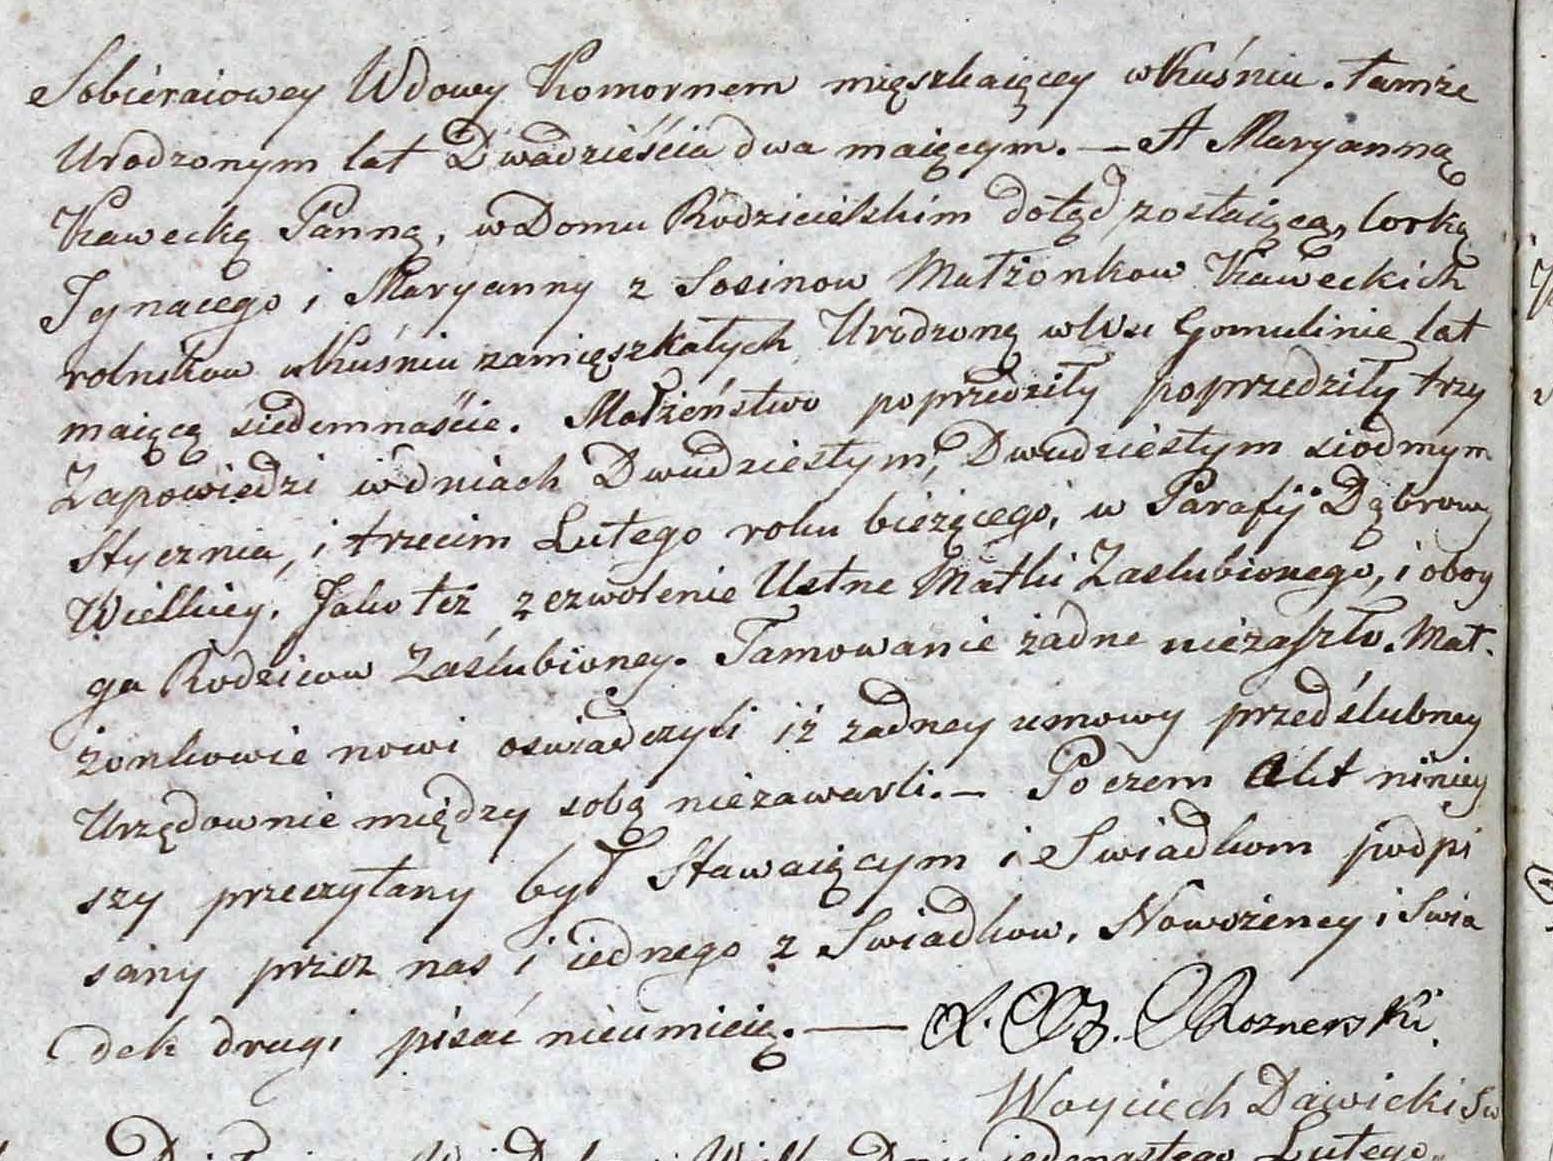 Sobieraiowey Wdowy Komornem mięszkaiącey w Kuśniu. tamże
Urodzonym lat Dwadzieścia dwa maiącym. — A Maryanną
Kawecką Panną, w Domu Rodzicielskim dotąd zostaiącą, Corką
Jgnacego i Maryanny z Sosinow Małżonkow Kaweckich
rolnikow w Kuśniu zamięszkałych Urodzoną w Wsi Gomulinie lat
maiącą siedemnaście. Małżeństwo poprzedziły poprzedziły trzy
Zapowiedzi w dniach Dwudziestym, Dwudziestym siodmym
Stycznia, i trzecim Lutego roku bieżącego, w Parafij Dąbrowy
Wielkiey, Jako też zezwolenie Ustne Matki Zaslubionego, i oboy
ga Rodzicow Zaślubioney. Tamowanie żadne niezaszło. Mał-
żonkowie nowi oswiadczyli iż żadney umowy przedślubney
Urzędownie między sobą niezawarli. — Poczem Akt niniey
szy przeczytany był Stawaiącym i Swiadkom podpi
sany przez nas i iednego z Swiadkow, Nowożeńcy i Swia
dek drugi pisać nieumieią. — Roznerski.
Woyciech Dawicki Sw
Lutego